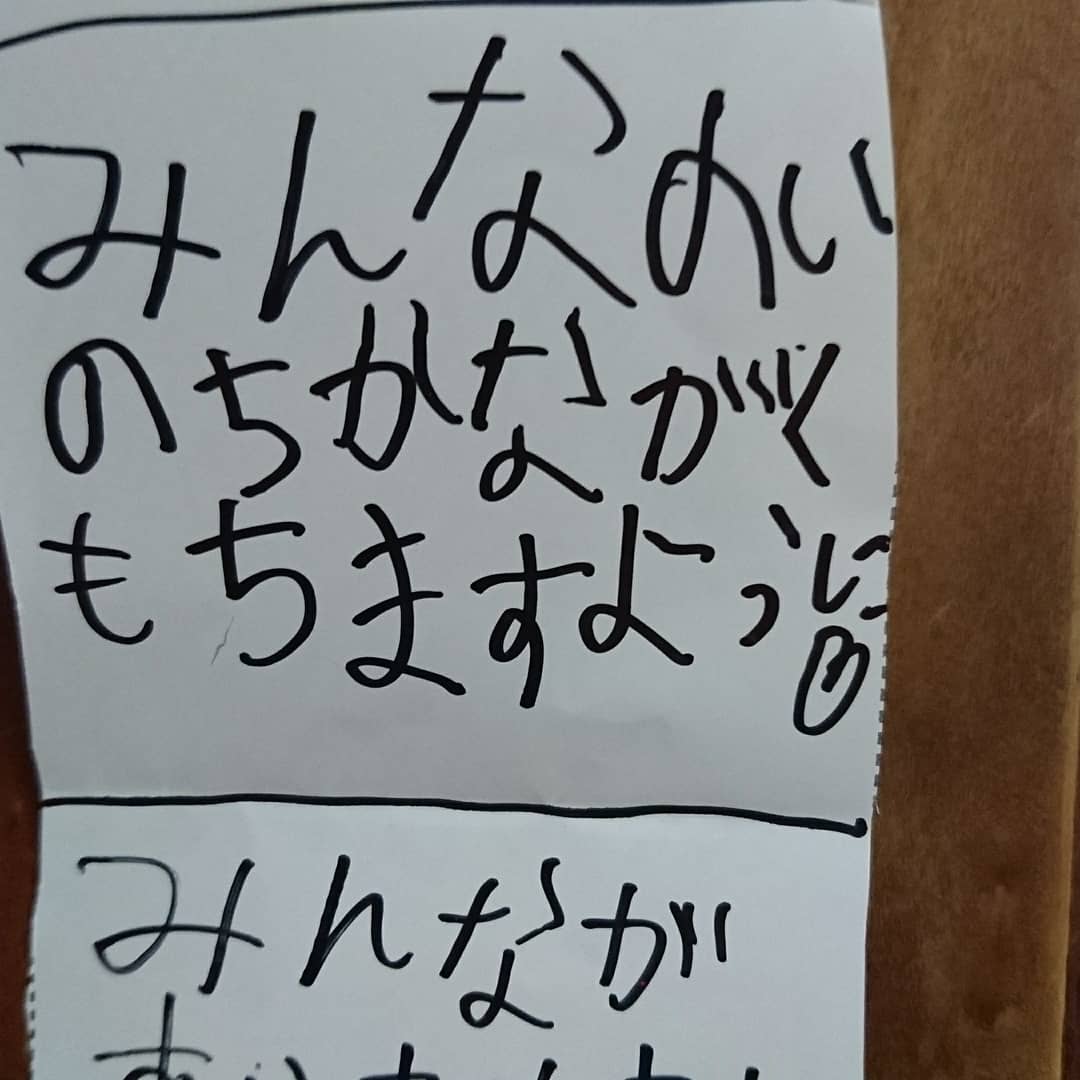 みんなのい
のちかながく
もちますように
みんなが